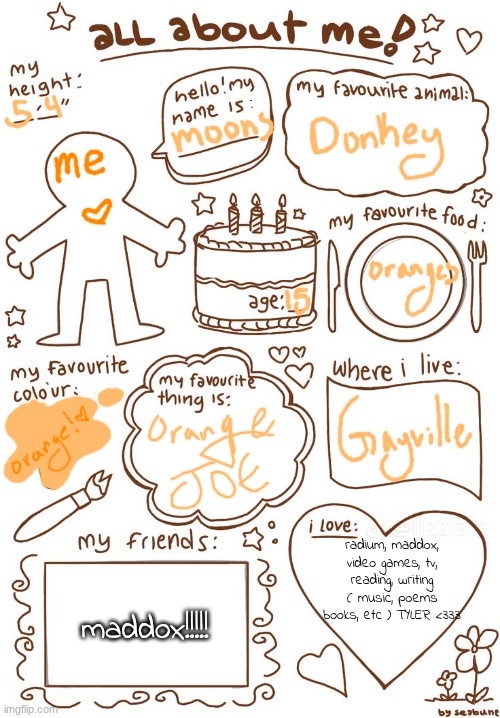 all about me!
my
height:
5'4"
hello! my
name is:
moons
my favourite animal:
Donkey
me
my favourite food:
oranges
age: 15
my favourite
colour:
orange!
my favourite
thing is:
orange
JOE
where i live:
Gayville
my friends:
maddox!!!!!
i love:
radium, maddox,
video games, tv,
reading, writing
( music, poems
books, etc ) TYLER <333
by seabune
imgflip.com